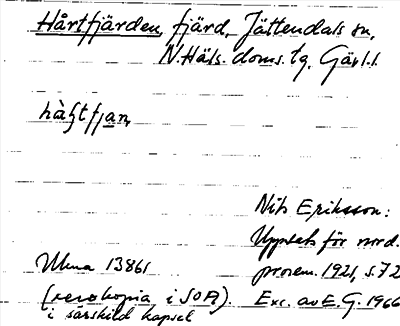 Hårtfjärden, fjärd, Jättendals sn,
N. Häls. doms. tg, Gävl. l.
hàʃtfjan,
Nils Eriksson:
Uppsats för nord.
Ulma 13861 prosem. 1921, s. 72
(xerokopia i SOFI). Exc. av E.G. 1966
i särskild kapsel